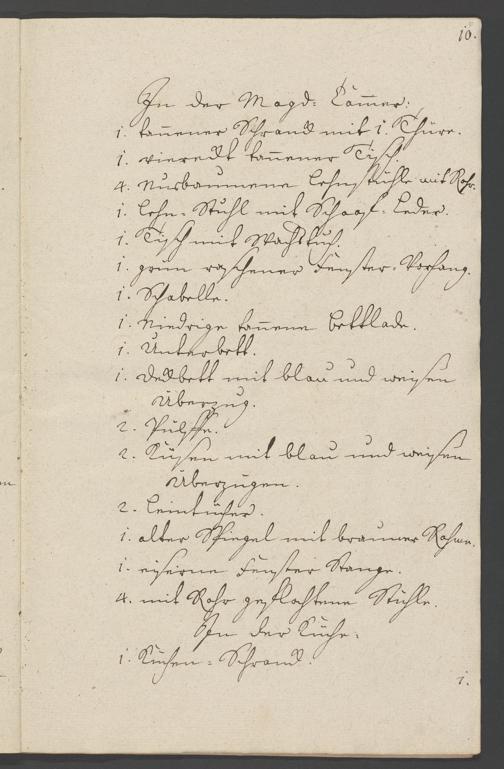 10.
In der Magd-Cam̄er:
1. tan̄ener Schranck mit 1. Thüre.
1. viereckt tan̄ener Tisch.
4. Nusbaumene Lehnstühle mit Rohr.
1. Lehn-Stuhl mit Schaaf-Leder.
1. Tisch mit Wachstuch.
1. grün raschener Fenster-Vorhang.
1. Schabelle.
1. Niedrige tan̄ene Bettlade.
1. Unterbett.
1. Deckbett mit blau und weisen
Überzug.
2. Pülffe.
2. Küssen mit blau und weisen
Überzügen.
2. Leintücher.
1. alter Spiegel mit brauner Rahme.
1. eiserne Fenster Stange.
4. mit Rohr geflochtene Stühle.
In der Küche.
1. Küchen-Schranck.
1.